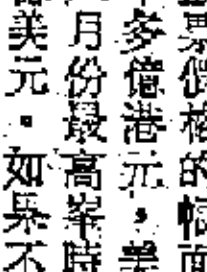 票價格的幅面
多億港元，美
月份最高峯時
美元。如果不